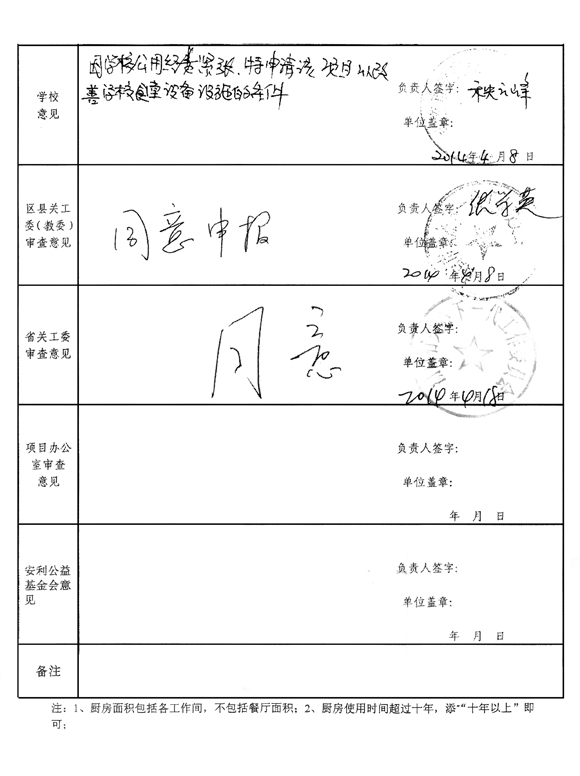 学校
意见
因学校公用经费紧张、特申请该项目以改
善学校食堂设备设施的条件
负责人签字:
单位盖章:
2014年4月8日
区县关工
委(教委)
审查意见
同意申报
负责人签字:
单位盖章:
2014年4月8日
省关工委
审查意见
同意
负责人签字:
单位盖章:
2014年4月18日
项目办公
室审查
意见
负责人签字:
单位盖章:
年 月 日
安利公益
基金会意
见
负责人签字:
单位盖章:
年 月 日
备注
注:1、厨房面积包括各工作间,不包括餐厅面积;2、厨房使用时间超过十年,添“十年以上”即
可;